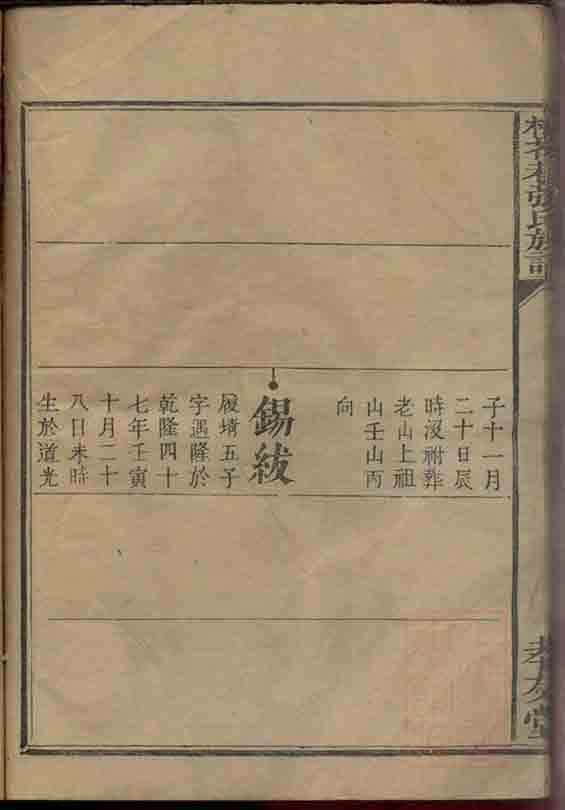 張氏族譜
孝友堂
子十一月
二十日辰
時沒祔葬
老山上祖
山壬山丙
向
錫紱
履堉五子
字遇隆於
乾隆四十
七年壬寅
十月二十
八日未時
生於道光